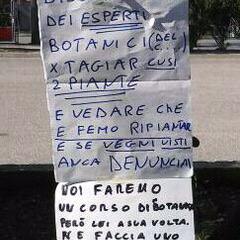 DEI ESPERTI
BOTANICI (DEL
C...)
X TAGIAR CUSI
2 PIANTE
E VEDARE CHE
E FEMO RIPIANTAR
E SE VEGNI VISTI
ANCA DENUNCIAI
VOI FAREMO
UN CORSO DI BOTANICA
PERÒ LEI A SUA VOLTA
NE FACCIA UNO